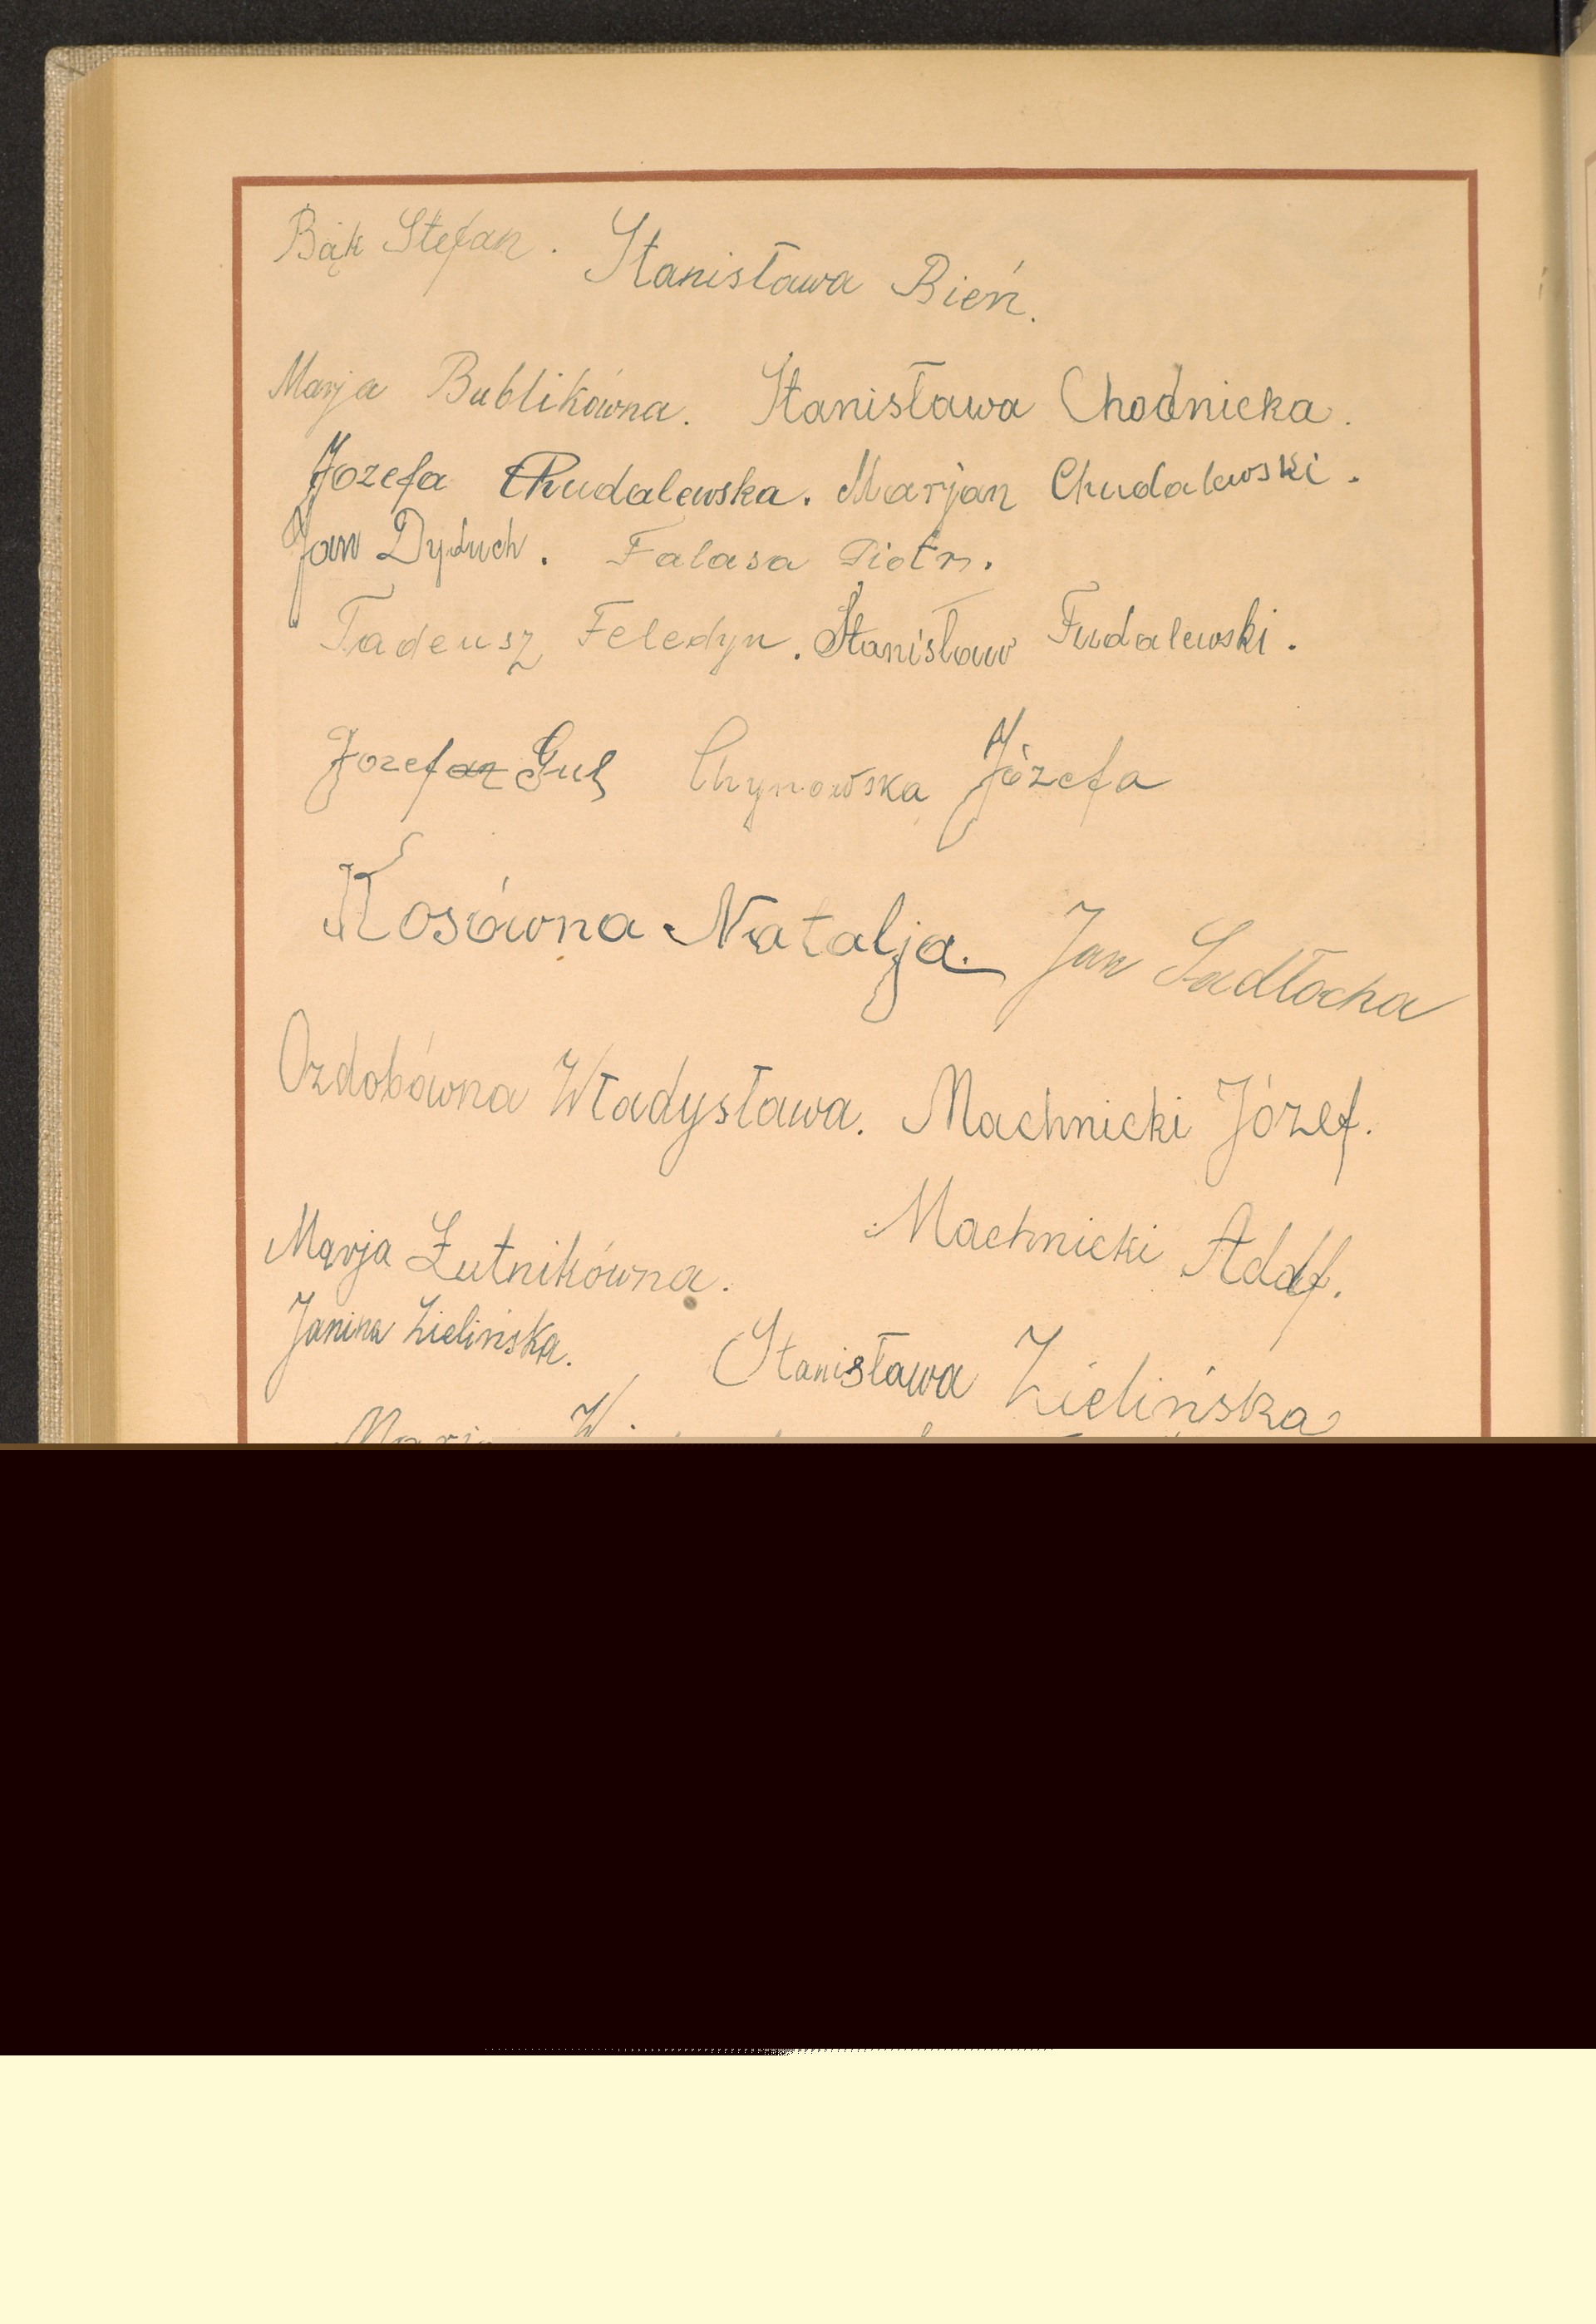 Bąk Stefan. Stanisława Bień.
Marja Bublikówna. Stanisława Chodnicka.
Józefa Chudalewska. Marjan Chudalewski.
Jan Dyduch. Falasa Piotr.
Tadeusz Feledyn. Stanisław Fudalewski.
Jozef Gul Chynowska Józefa
Kosówna Natalja. Jan Sadłocha
Ozdobówna Władysława. Machnicki Józef.
Marja Łutnikówna. Machnicki Adolf.
Janina Zielińska. Stanisława Zielińska